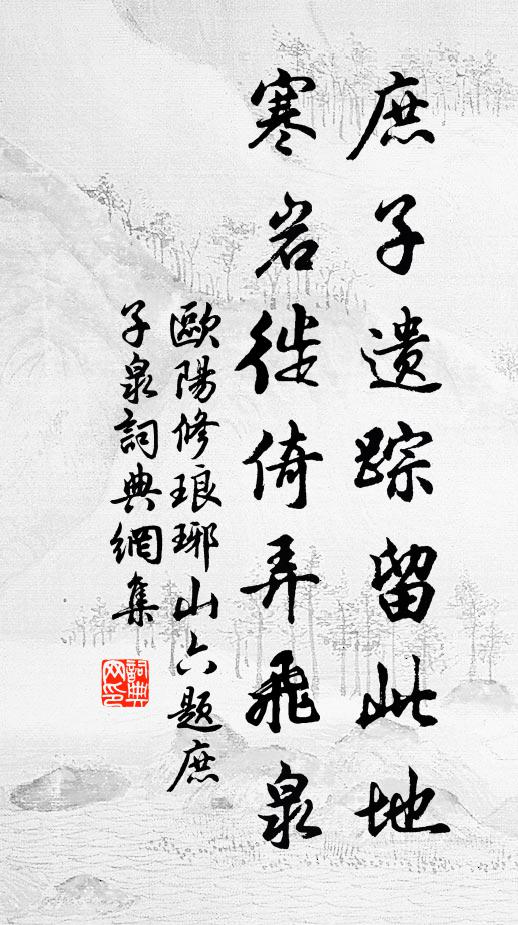 庶子遗踪留此地
寒岩徙倚弄飛泉
歐陽修琅琊山六題庶
子泉詞典網集
詞典网印